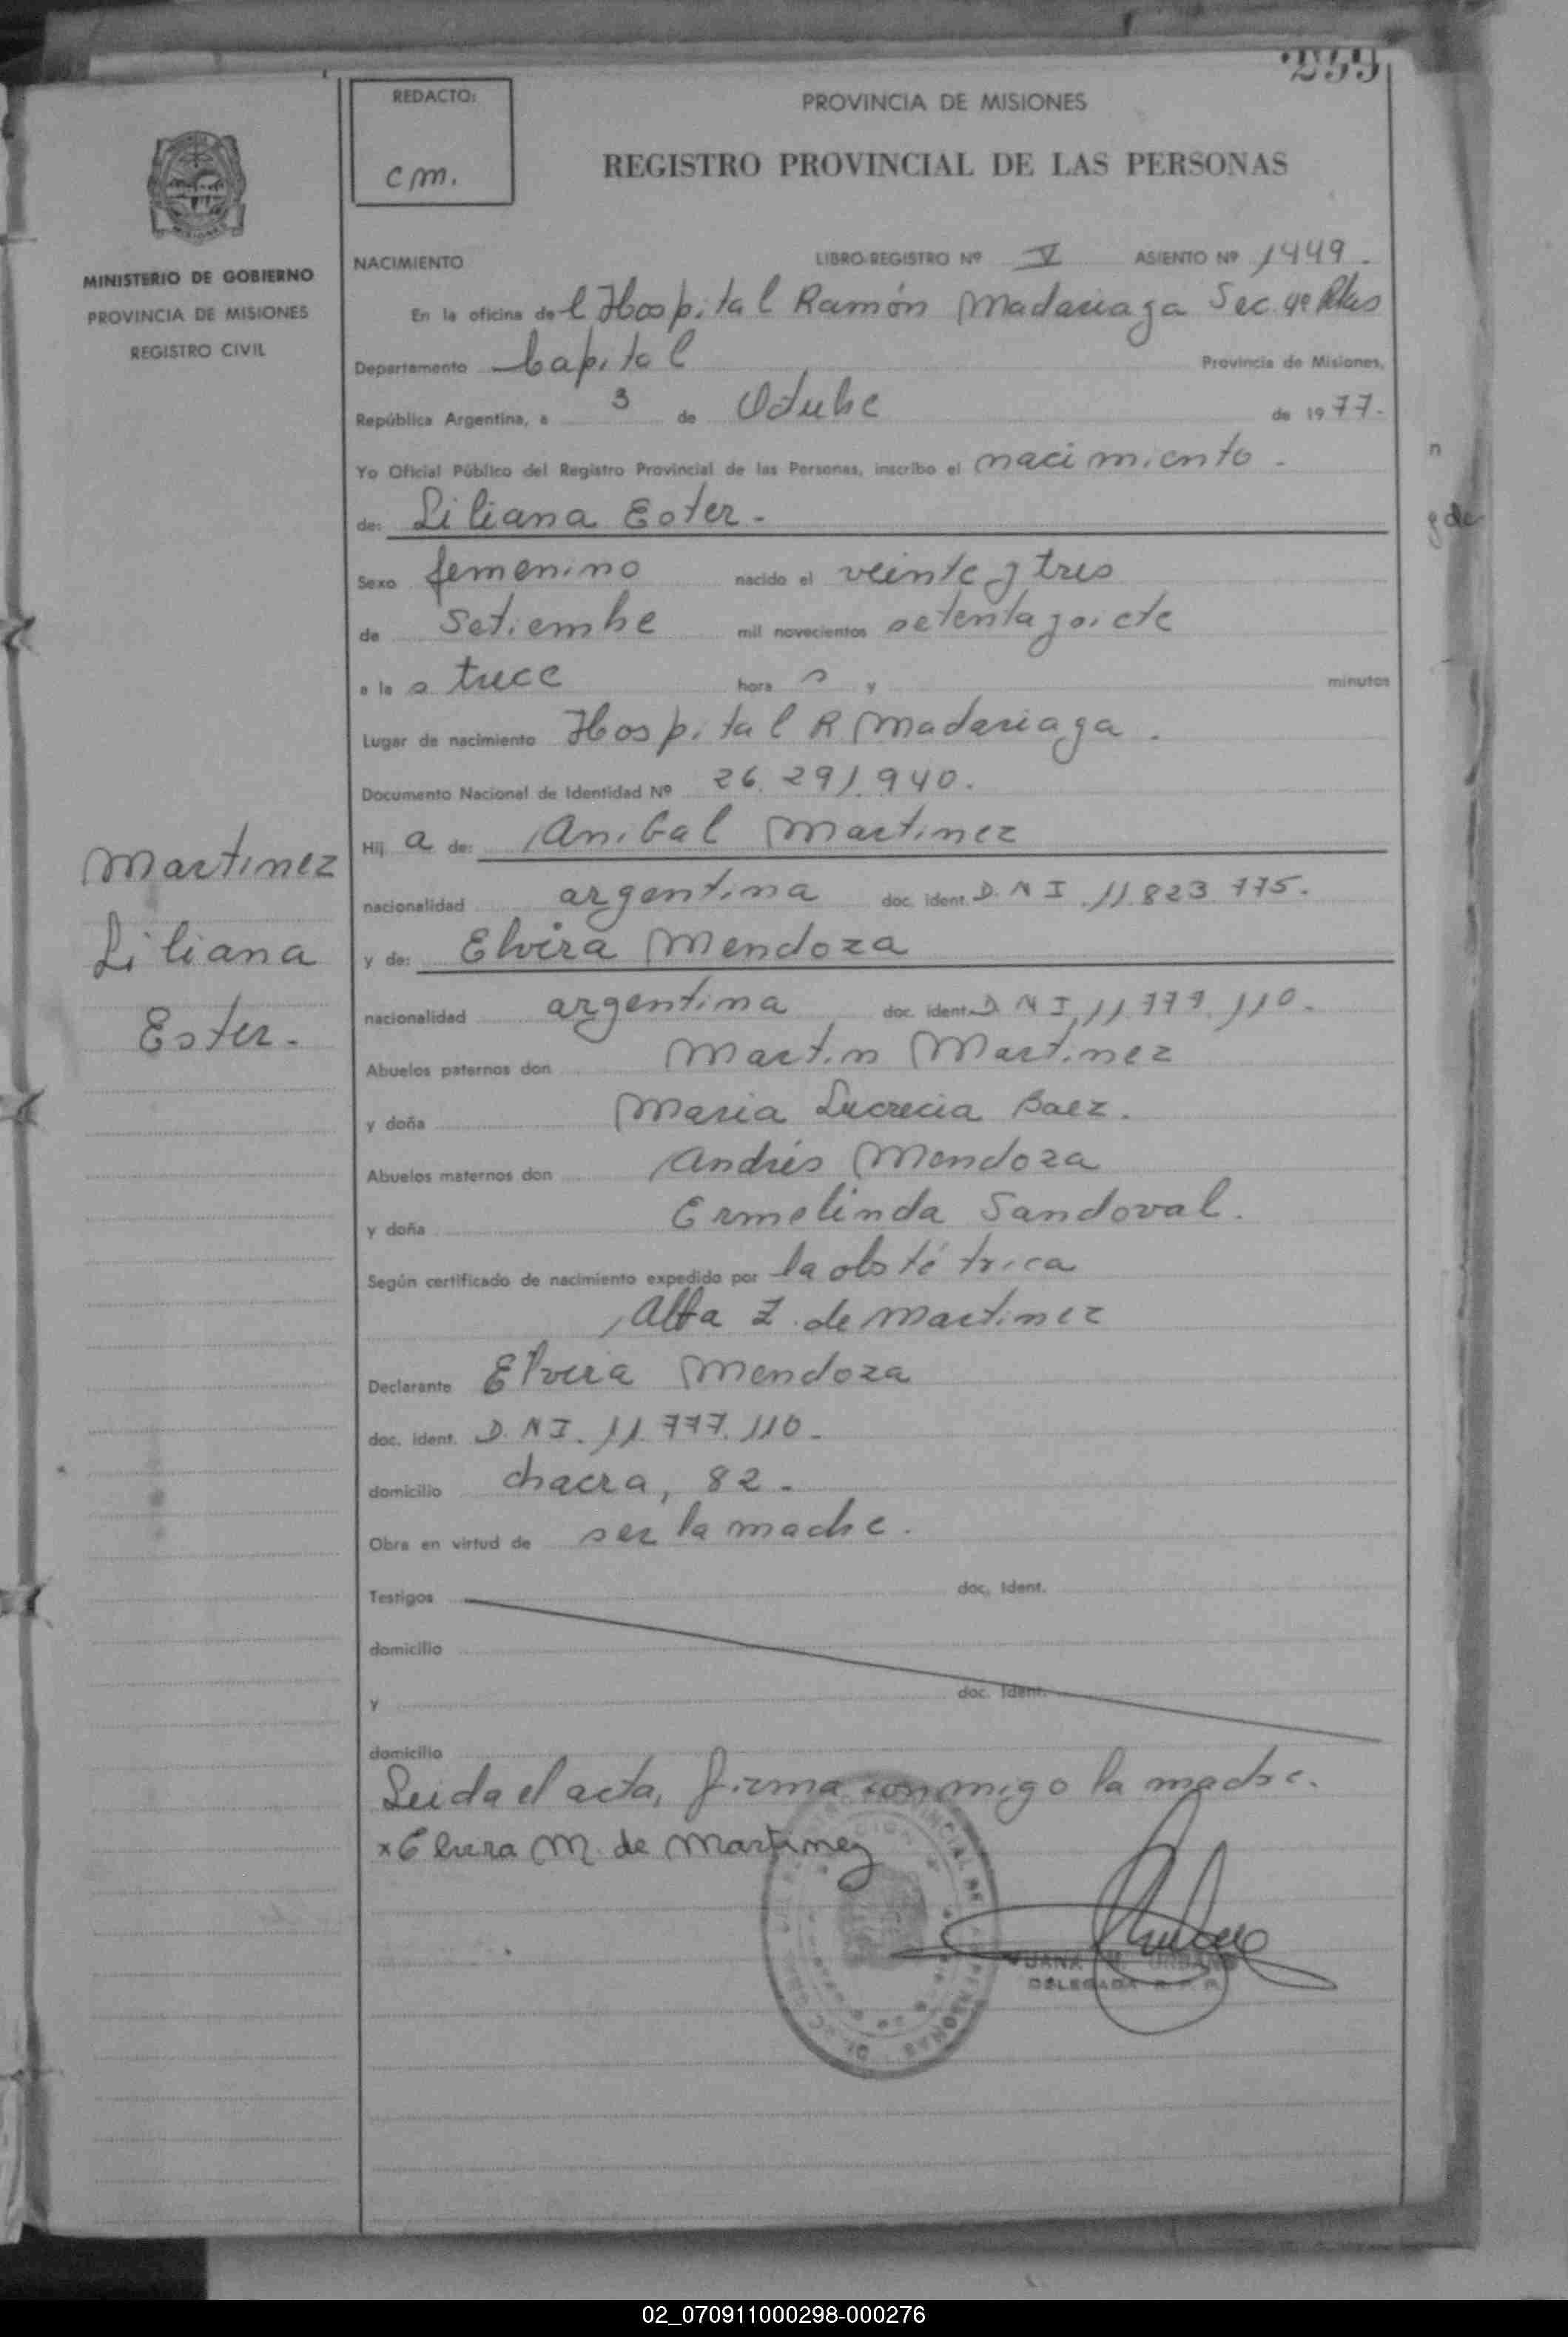 259
REDACTO:
cm.
PROVINCIA DE MISIONES
REGISTRO PROVINCIAL DE LAS PERSONAS
MINISTERIO DE GOBIERNO
PROVINCIA DE MISIONES
REGISTRO CIVIL
NACIMIENTO LIBRO-REGISTRO Nº V ASIENTO Nº 1449.
En la oficina del Hospital Ramón Madariaga Sec.
Departamento Capital Provincia de Misiones,
República Argentina, a 3 de Octubre de 1977.
Yo Oficial Público del Registro Provincial de las Personas, inscribo el nacimiento.
de: Liliana Ester.
Sexo femenino nacido el veinte y tres
de Setiembre mil novecientos setenta y siete
a la s trece hora s y minutos
Lugar de nacimiento Hospital R Madariaga.
Documento Nacional de Identidad Nº 26.291.940.
Hij a de: Anibal Martinez
nacionalidad argentina doc. ident. D.N I .11.823.775.
y de: Elvira Mendoza
nacionalidad argentina doc. ident. D.N I.11.777.110.
Abuelos paternos don Martin Martinez
y doña Maria Lucrecia Baez.
Abuelos maternos don Andrés Mendoza
y doña Ermelinda Sandoval.
Según certificado de nacimiento expedido por la obstétrica
Alba Z. de Martinez
Declarante Elvira Mendoza
doc. ident. D.N I. 11.777.110.
domicilio chacra, 82.
Obra en virtud de ser la madre.
Testigos doc. Ident.
domicilio
y doc. Ident.
domicilio
Leida el acta, firma conmigo la madre.
x Elvira M. de Martinez
JUANA M. URBANO
DELEGADA R. P. P.
Martinez
Liliana
Ester.
n
y de
02_070911000298-000276